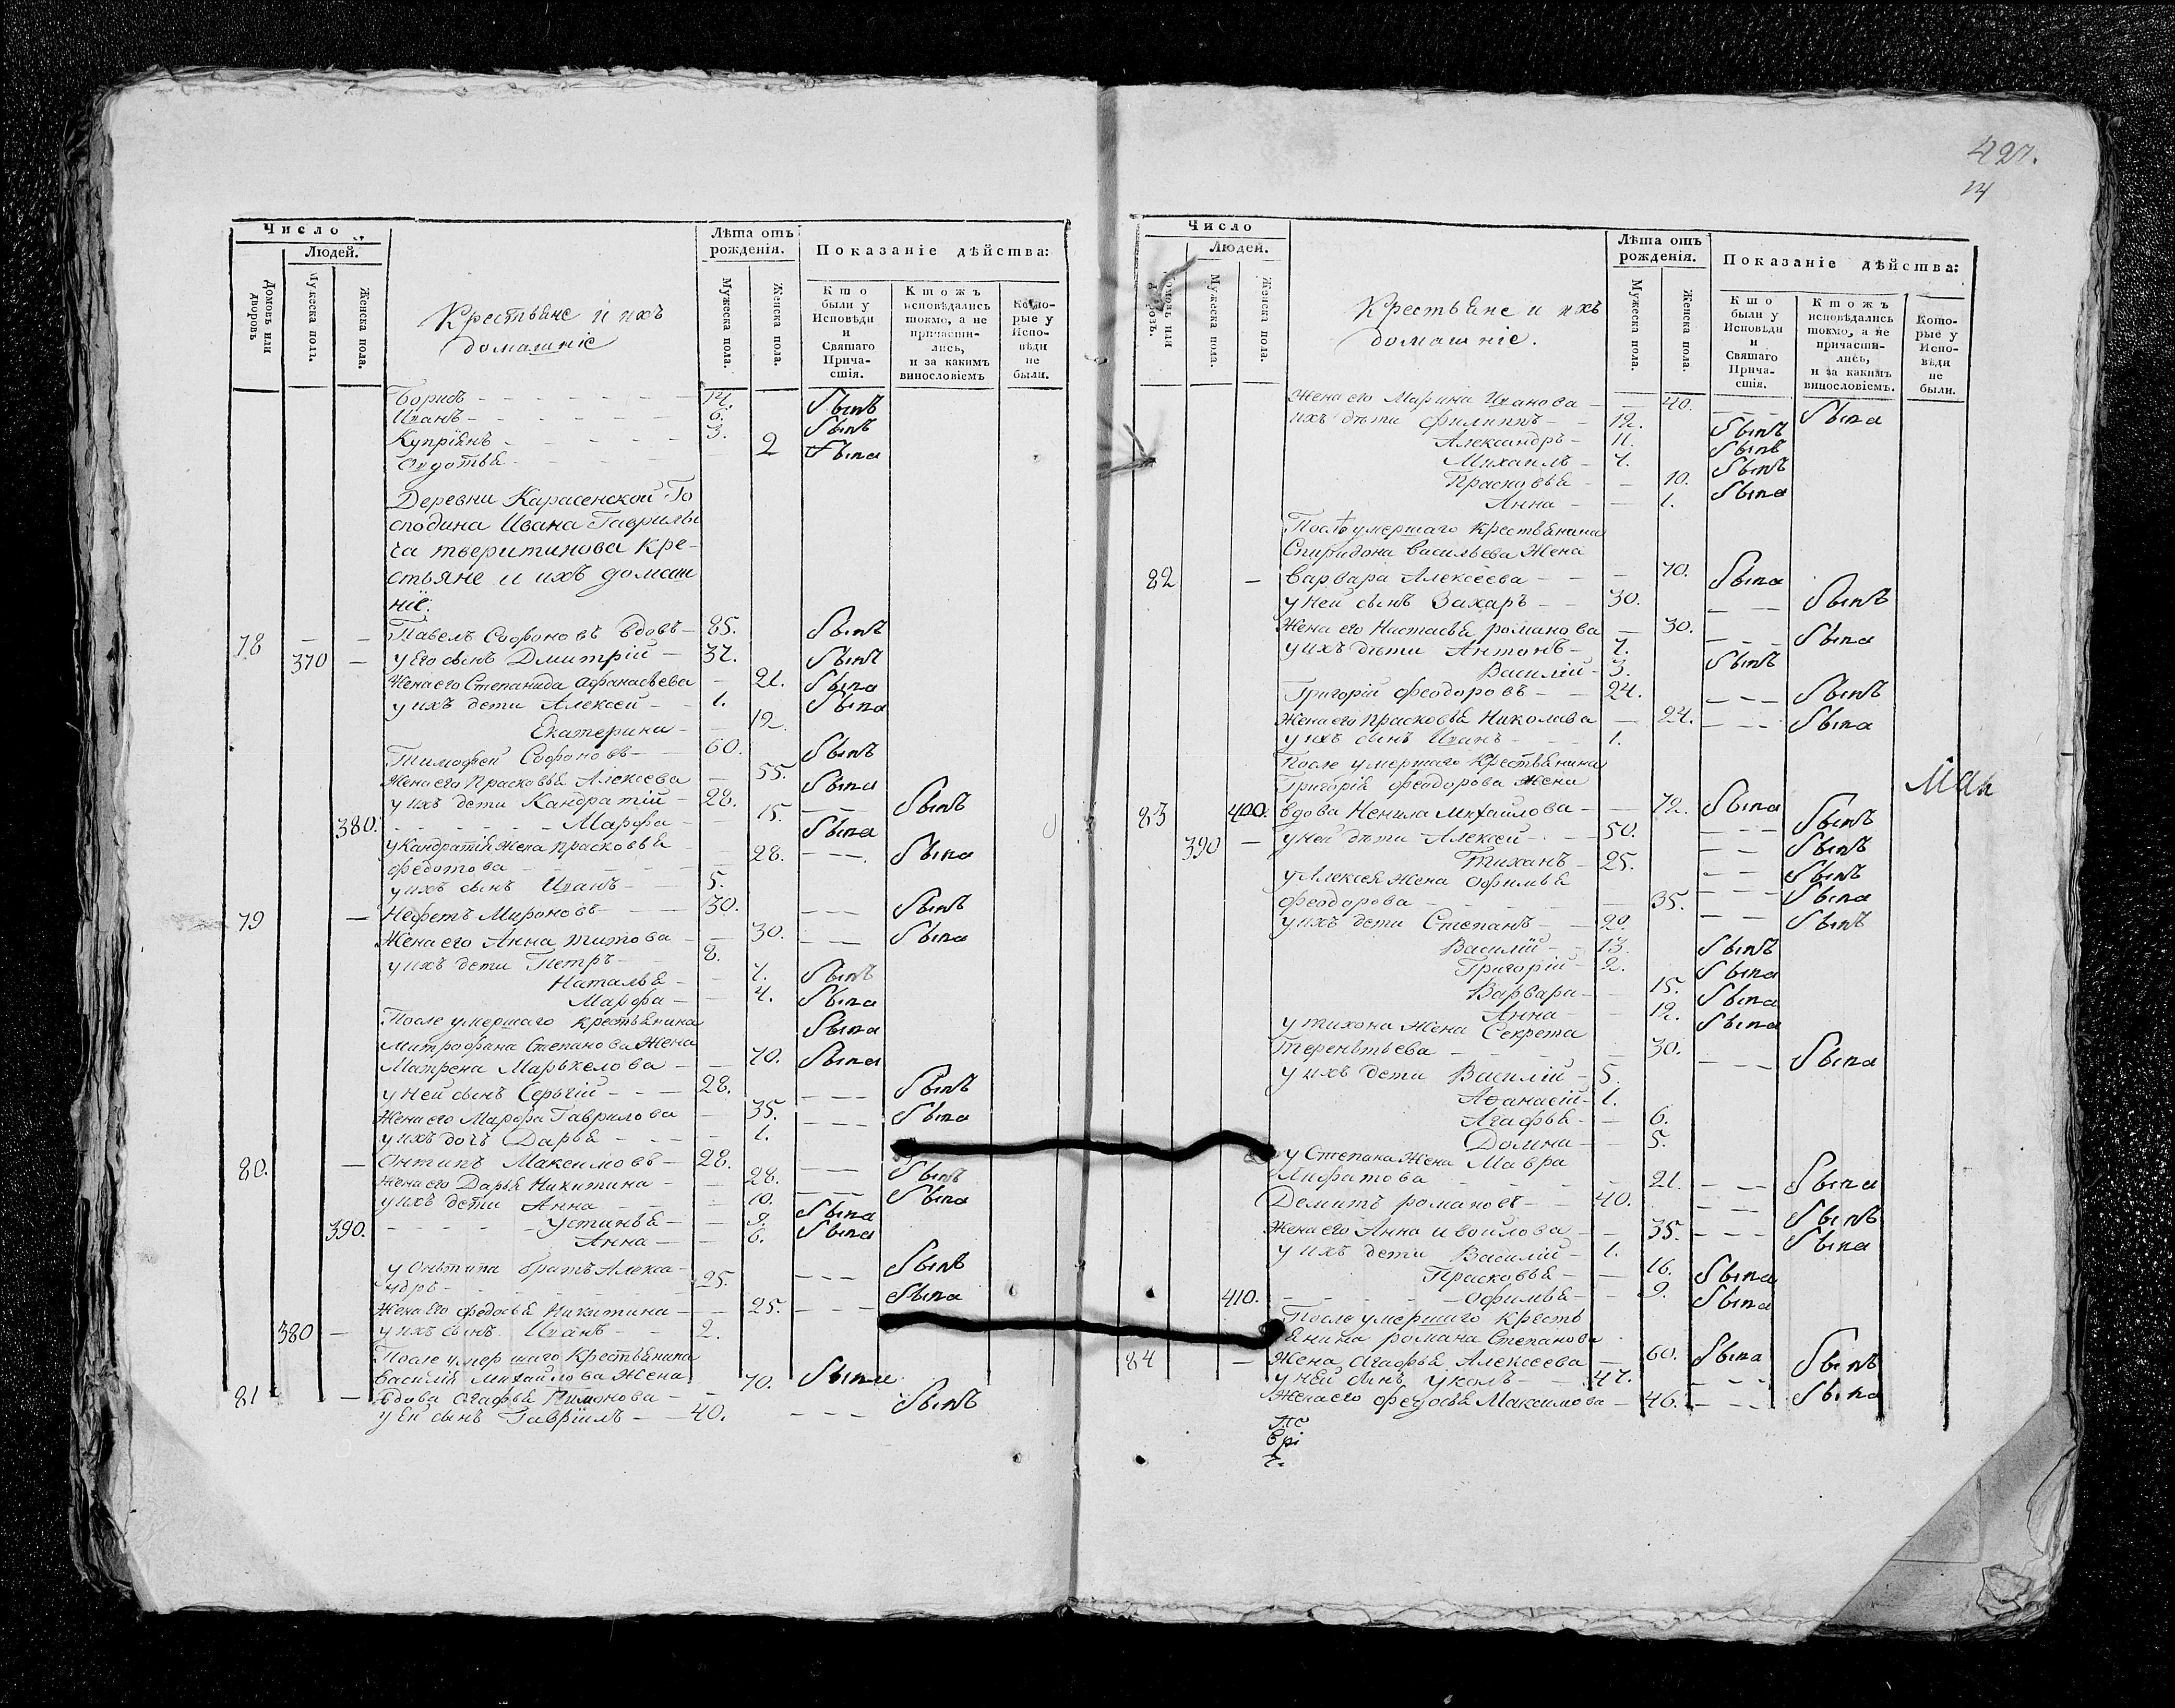 427.
14
Число
Людей.
Домовъ или дворовъ
Мужеска пола.
Женска пола.
Крестьяне и ихъ
домашніе
Лѣта отъ рожденія.
Мужеска пола.
Женска пола.
Показаніе дѣйства:
Кто были у Исповѣди и Святаго Прича-стія.
Ктожъ исповѣдались токмо, а не причасти-лись, и за какимъ винословіемъ
Кото-рые у Испо-вѣди не были.
Борисъ - 14. былъ
Иванъ - 6. былъ
Купріянъ - 3.
Овдотья - 2 была
Деревни Карасенской Го
сподина Ивана Гаврилы
ча тверитинова кре-
стьяне и ихъ домаш
ніе.
78 Павелъ Софоновъ вдовъ - 85. былъ
370 у Его сынъ Дмитрій - 37. былъ
Жена его Степанида Афанасьева - 21. была
у ихъ дети Алексей - 1. была
Екатерина - 12.
Тимофей Софоновъ - 60. былъ
Жена его Прасковья Алексева - 55. была
у ихъ дети Кандратій - 28. былъ
380. Марфа - 15. была
у Кандратія Жена прасковья
федотова - 28. была
у ихъ сынъ Иванъ - 5.
79 Нефетъ Мироновъ - 30. былъ
Жена его Анна титова - 30. была
у ихъ дети Петръ - 8. былъ
Наталья - 7. была
Марфа - 4. была
После умершаго крестьянина
Митрофана Степанова Жена
Матрена Марькелова - 70. была
у ней сынъ Серьгій - 28. былъ
Жена его Марфа Гаврилова - 35. была
у ихъ дочь Дарья - 1.
80. Онтипъ Максимовъ - 28. былъ
Жена его Дарья Никитина - 28. была
у ихъ дети Анна - 10. была
390. Устинья - 9. была
Анна - 6.
у Онтипа братъ Алекса-
ндръ - 25. былъ
Жена Его федосья Никитина - 25. была
380 у ихъ сынъ Иванъ - 2.
После умершаго Крестьянина
Василія Михайлова Жена
81 вдова Агафья - 70. была
у Ей сынъ Гавріилъ - 40. былъ
Число
Людей.
Домовъ или
Мужеска пола.
Женска пола.
Крестьяне и ихъ
домашніе.
Лѣта отъ рожденія.
Мужеска пола.
Женска пола.
Показаніе дѣйства:
Кто были у Исповѣди и Святаго Прича-стія.
Ктожъ исповѣдались токмо, а не причасти-лись, и за какимъ винословіемъ.
Кото-рые у Испо-вѣди не были.
Жена его Марина Иванова - 40. была
ихъ дѣти Филиппъ - 12. былъ
Александръ - 11. былъ
Михаилъ - 7. былъ
Прасковья - 10. была
Анна - 1.
Послѣ умершаго Крестьянина
Спиридона Васильева Жена
82 Варвара Алексеева - 70. была
у ней сынъ Захаръ - 30. былъ
Жена его Настасья романова - 30. была
у ихъ дѣти Антонъ - 7. былъ
Василій - 3.
Григорій Феодоровъ - 24. былъ
Жена его Прасковья Николава - 24. была
у ихъ сынъ Иванъ - 1.
После умершаго Крестьянина
Григорія Феодорова Жена
83 400. вдова Ненила Михайлова - 72. была
390 у ней дѣти Алексей - 50. былъ
Тиханъ - 25. былъ
у Алексея Жена Офимья
Феодорова - 35. была
у ихъ дети Степанъ - 20. былъ
Василій - 13. былъ
Григорій - 2.
Варвара - 15. была
Анна - 12. была
у тихона Жена Секрета
Терентьева - 30. была
у ихъ дети Василій - 5.
Афанасій - 1.
Агафья - 6.
Домна - 5.
у Степана Жена Мавра
- 21. была
Демитъ романовъ - 40. былъ
Жена его Анна - 35. была
у ихъ дети Василій - 1.
Прасковья - 16. была
410. Офимья - 9. была
После умершаго Кресть
янина романа Степанова
84 Жена Агафья Алексеева - 60. была
у ней сынъ - 47. былъ
Жена его Федосья Максимова - 46. была